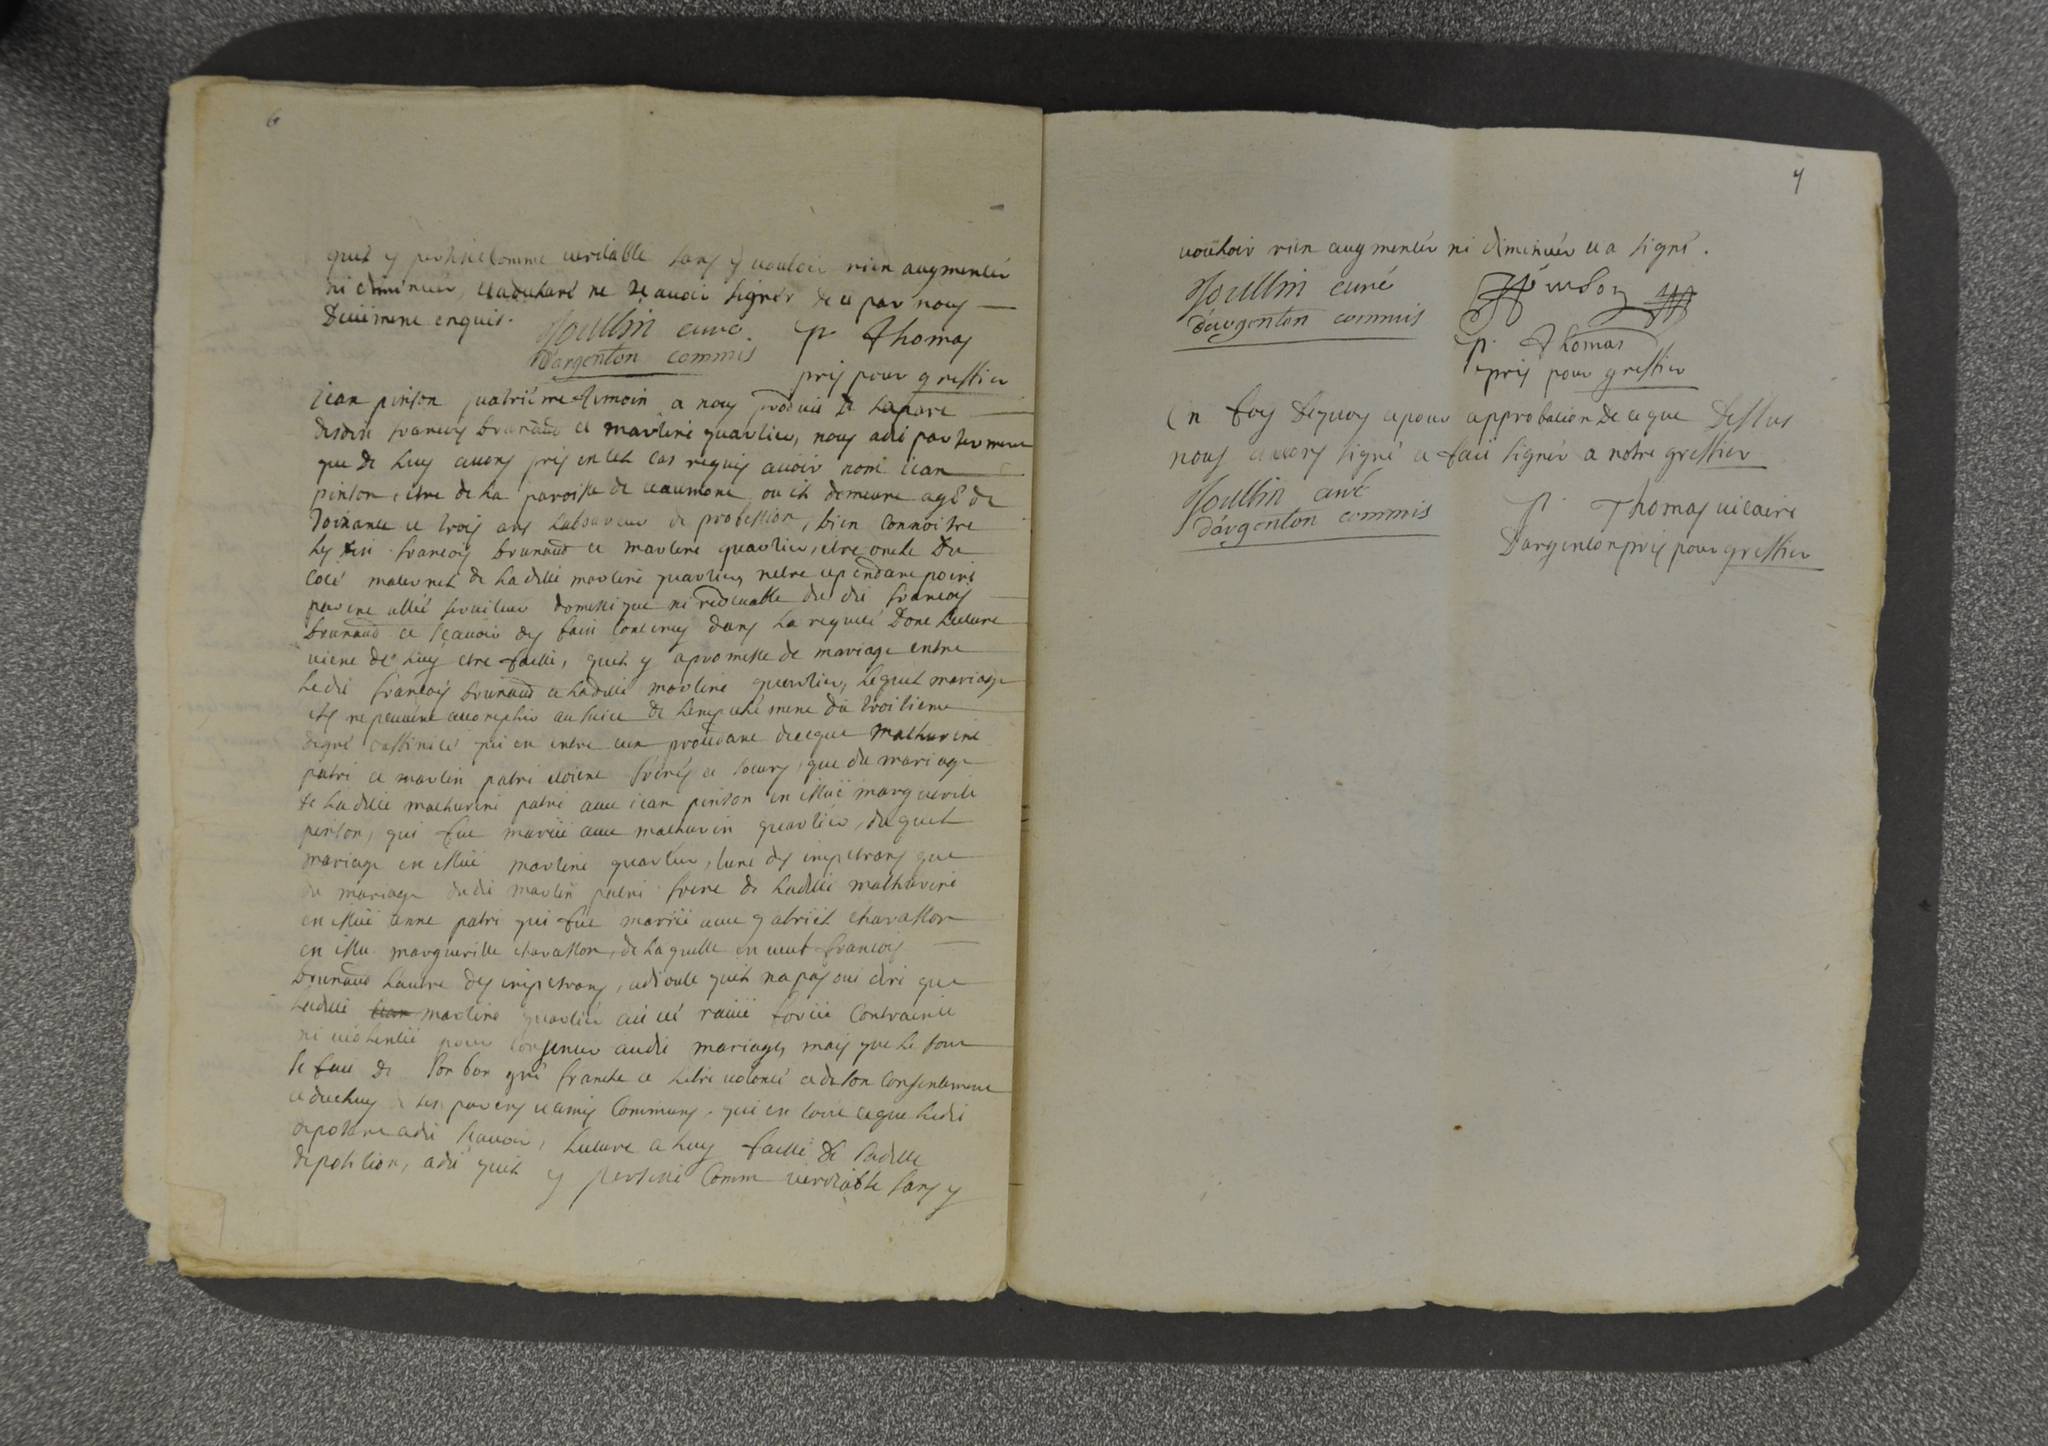 6
quil y persiste comme veritable sans y vouloir rien augmenter
ni diminuer, et a declaré ne sçavoir signer de ce par nous
Duëment enquis.
Moullin curé P. Thomas
d'argenton commis
pris pour greffier
jean pinson quatriéme temoin a nous produit de la part
desdits francois brunaud et martine quartier, nous a dit par serment
que de luy avons pris en tel cas requis avoir nom jean
pinson, etre de la paroisse de ceaumont ou il demeure agé de
soixante et trois ans laboureur de profession, bien connoitre
les dits francois brunaud et martine quartier, etre oncle Du
coté maternel de laditte martine quartier, netre cependant point
parent allié serviteur domestique ni redevable du dit francois
brunaud et sçavoir des faits contenus dans la requete Dont lecture
vient de luy etre faitte, quil y a promesse de mariage entre
ledit francois brunaud et laditte martine quartier, lequel mariage
ils ne peuvent accomplir au suiet de lempechement du troisieme
degré daffinité qui est entre eux provenant de ce que mathurine
patri et martin patri etoient freres et soeurs, que du mariage
de laditte mathurine patri avec jean pinson est issuë marguerite
pinson, qui fut mariée avec mathurin quartier, duquel
mariage est issuë martine quartier, lune des impetrans que
du mariage dudit martin patri frere de laditte mathurine
est issuë anne patri qui fut mariée avec gabriel chavasson
est issu marguerite chavasson, de laquelle est veuf francois
brunaud lautre des impetrans, adioute quil na pas oui dire que
laditte martine quartier ait eté ravie forcée contrainte
ni violentée pour consentir audit mariage, mais que le tout
se fait de son bon gré franche et libre volonté et de son consentement
et de celuy de ses parens et amis communs. qui est tout ce que ledit
deposant a dit sçavoir, lecture a luy faitte de laditte
deposition, a dit quil y persiste comme veritable sans y
7
vouloir rien augmenter ni diminuer et a signé.
Moullin curé
d'argenton commis
P. Thomas
pris pour greffier
En foy dequoy et pour approbation de ce que Dessus
nous avons signé et fait signer a notre greffier
Moullin curé
d'argenton commis
P. Thomas vicaire
D'argenton pris pour greffier